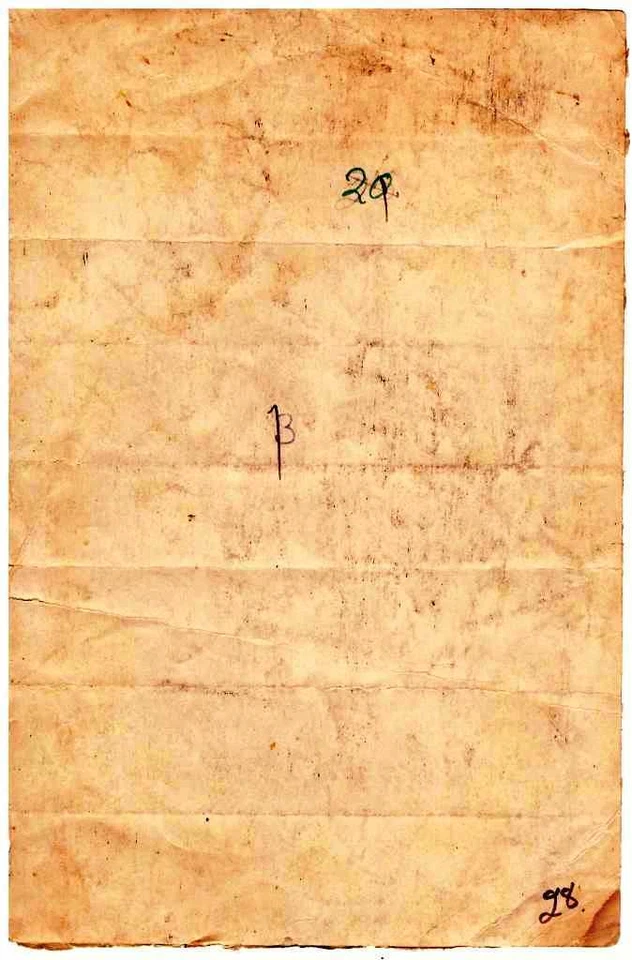 29
28